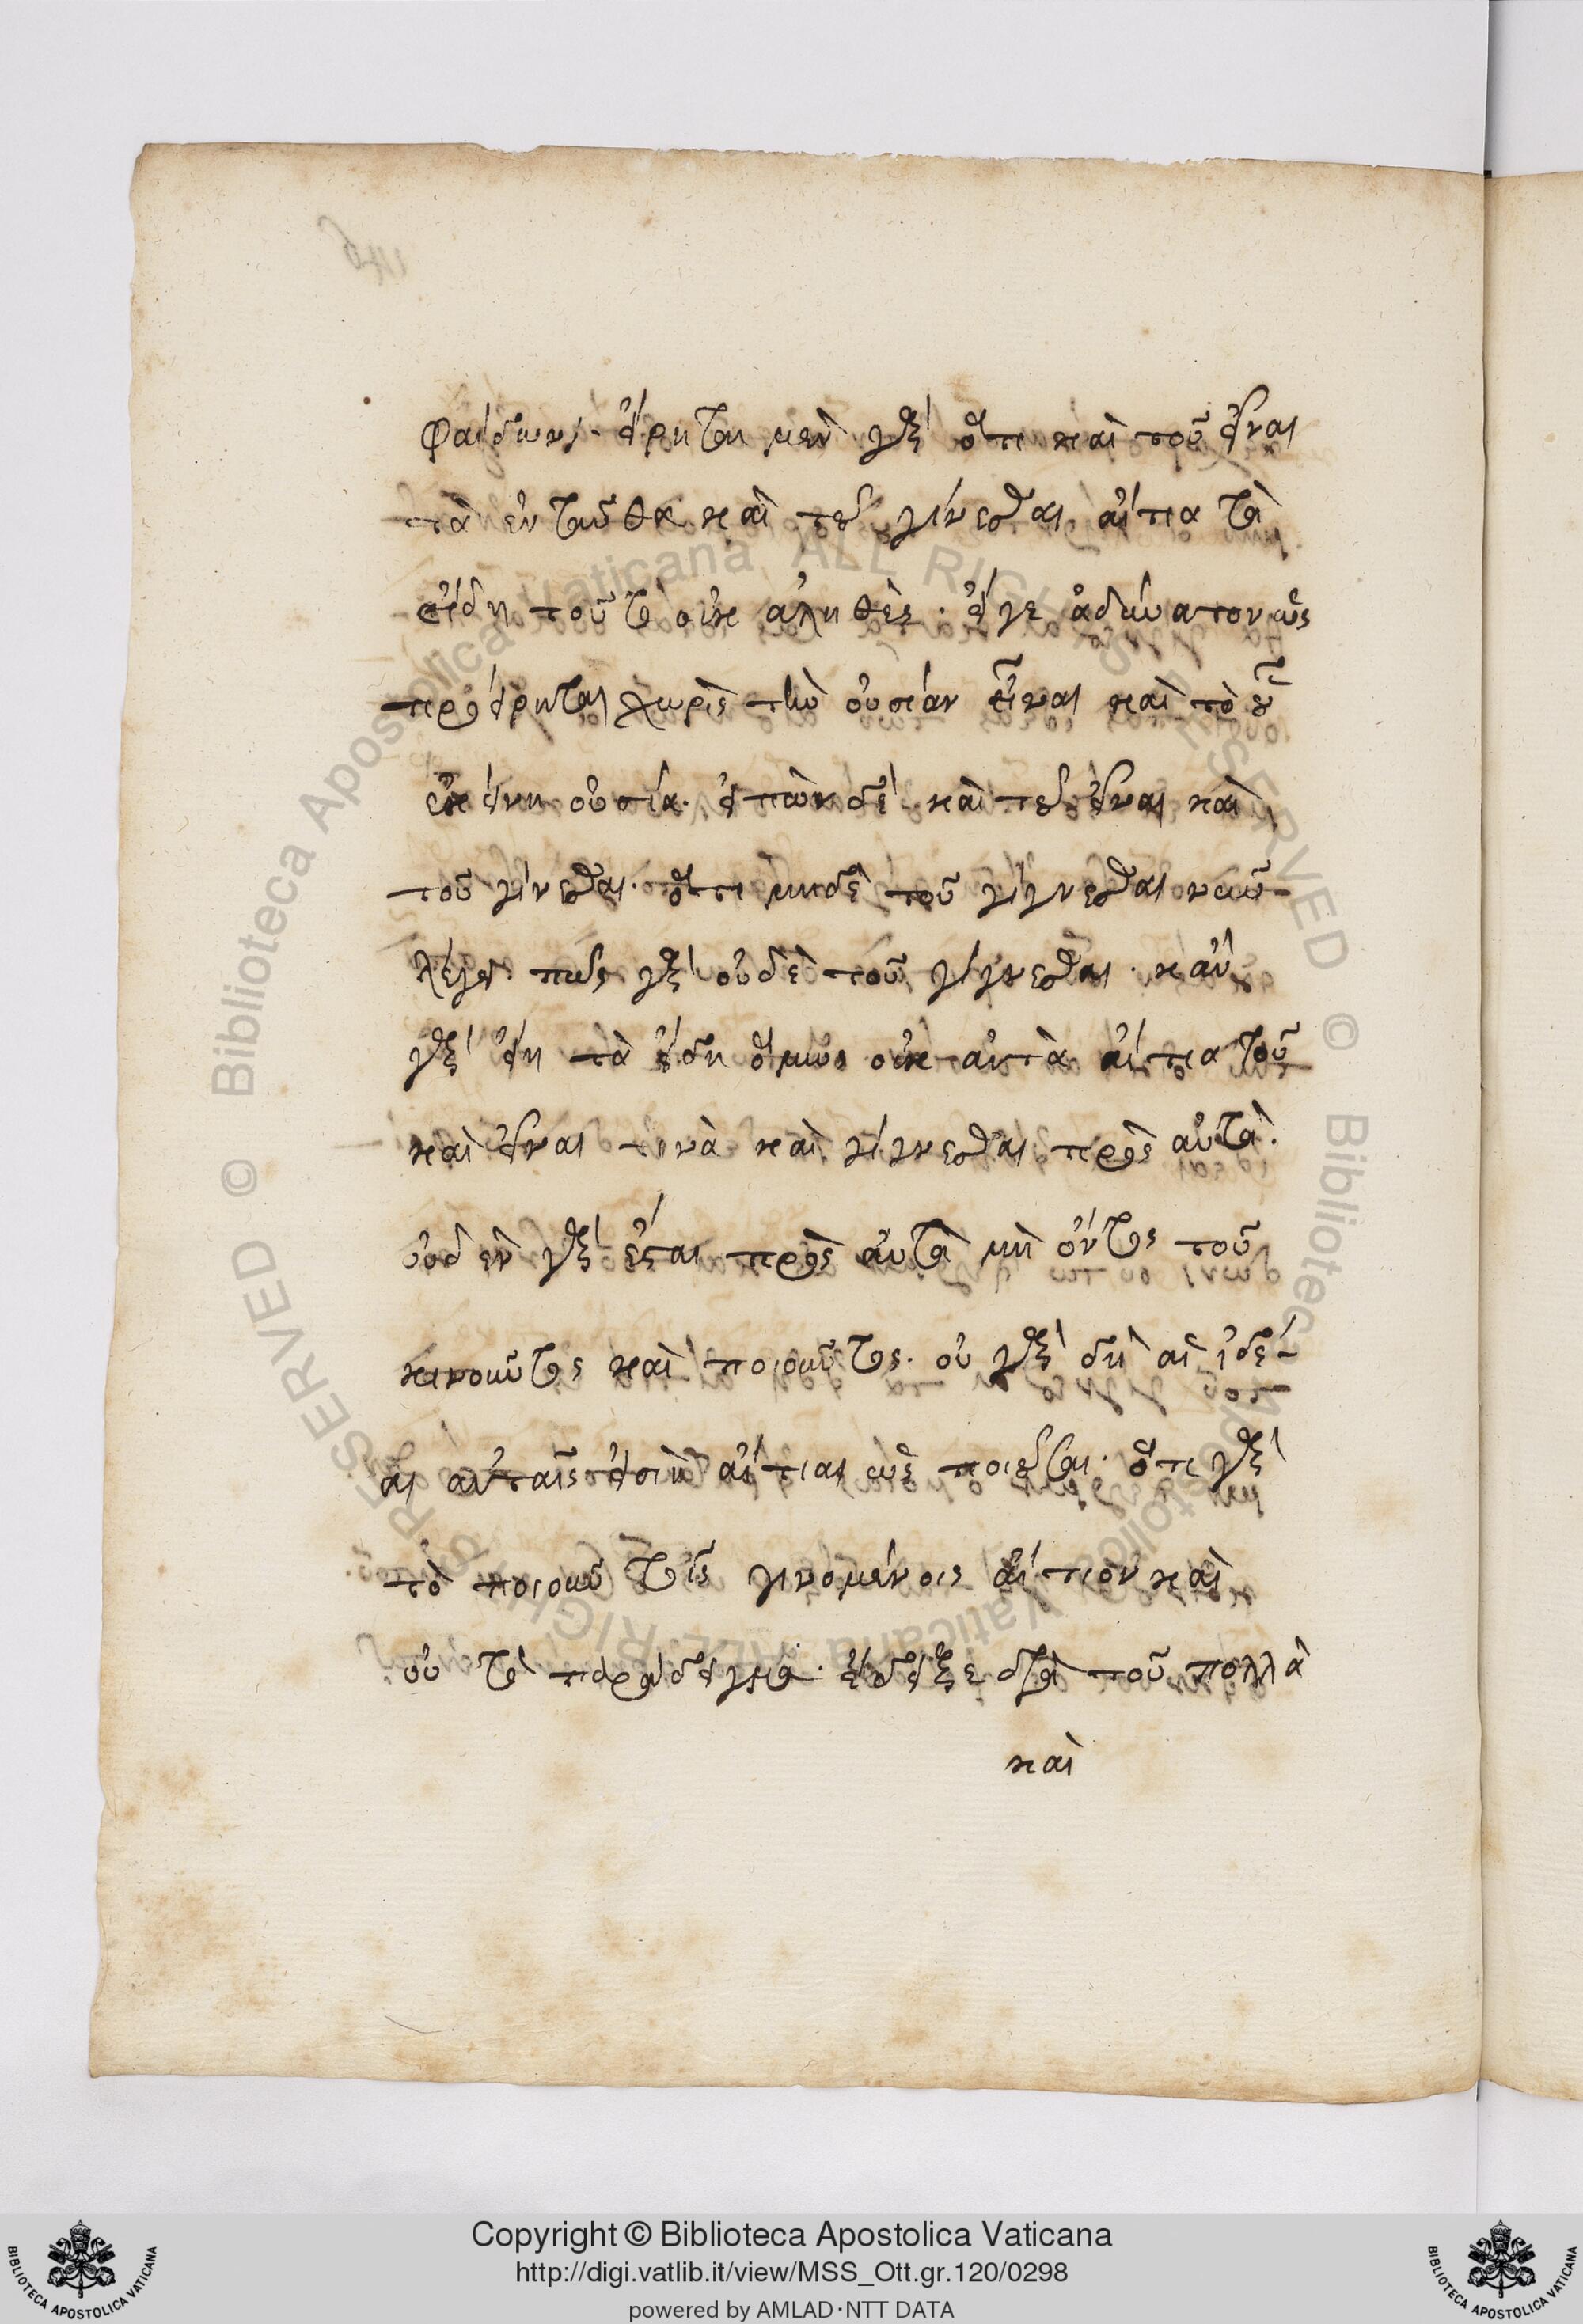 φαίδωνι· εἴρηται μὲν γὰρ ὅτι καὶ τοῦ εἶναι
τὰ ἐνταῦθα καὶ τοῦ γίνεσθαι αἴτια τὰ
εἴδη τοῦτο οὐκ ἀληθὲς· εἴγε ἀδύνατον ὡς
προείρηται χωρὶς τὴν οὐσίαν εἶναι καὶ τὸ οὗ
ἐκείνη οὐσία. εἰπὼν δὲ καὶ τοῦ εἶναι καὶ
τοῦ γίνεσθαι. ὅτι μηδὲ τοῦ γίγνεσθαι νῦν
λέγει πῶς γὰρ οὐδὲ τοῦ γίγνεσθαι. κἂν
γὰρ εἴη τὰ εἴδη ὅμως οὐκ αὐτὰ αἴτια τοῦ
καὶ εἶναι τινὰ καὶ γίγνεσθαι πρὸς αὐτά.
οὐδὲν γὰρ ἔσται πρὸς αὐτὰ μὴ ὄντος τοῦ
κινοῦντος καὶ ποιοῦντος. οὐ γὰρ δὴ αἱ ἰδέ-
αι αὐταῖς εἰσὶν αἴτιαι ὡς ποιοῦσαι. ὅτι γὰρ
τὸ ποιοῦν τοῖς γινομένοις αἴτιον καὶ
οὐ τὸ παράδειγμα. ἔδειξε διὰ τοῦ πολλὰ
καὶ
Copyright © Biblioteca Apostolica Vaticana
http://digi.vatlib.it/view/MSS_Ott.gr.120/0298
powered by AMLAD·NTT DATA